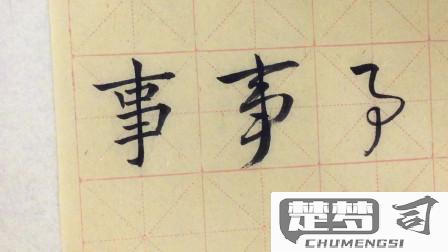 事 事 事
楚梦司
CHUMENGSI